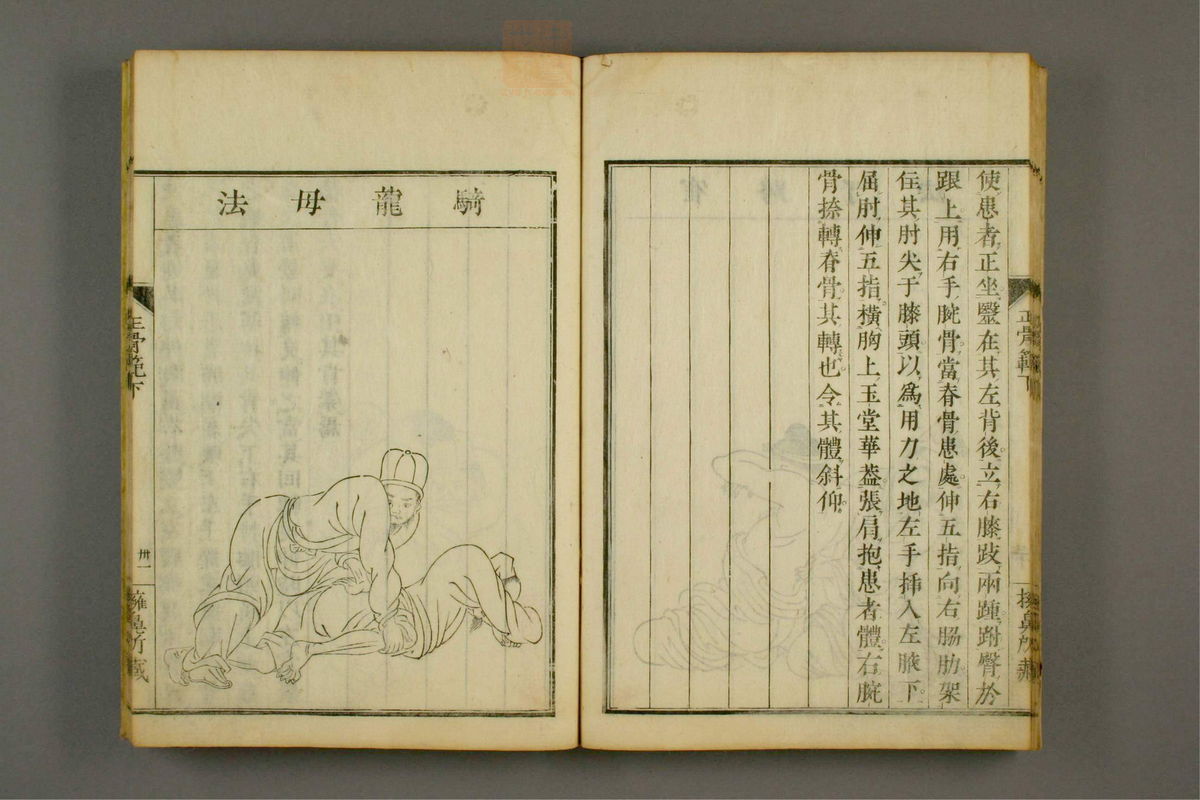 使患者正坐毉在其左背後立右膝跂兩踵跗臀於
跟上用右手腕骨當脊骨患處伸五指向右肠肋架
住其肘尖于膝頭以爲用力之地左手插入左腋下
屈肘伸五指橫胸上玉堂華葢張肩抱患者體右腕
骨捺轉脊骨其轉也令其體斜仰
正骨範下
騎龍母法
正骨範下
卅一